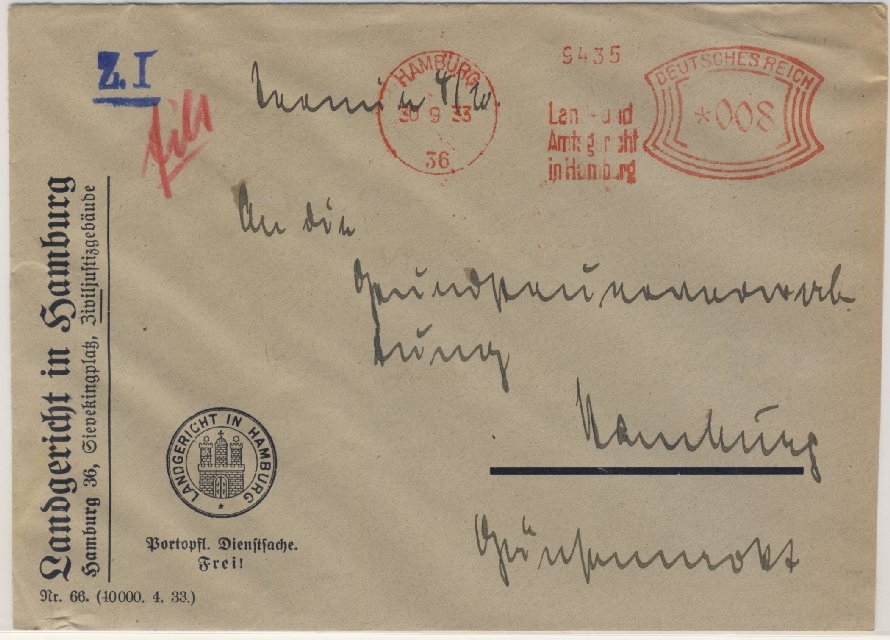 Z. I
Eilt
Termin 4/10.
HAMBURG
30 9 33
36
9435
Land- und
Amtsgericht
in Hamburg
DEUTSCHES REICH
*008
An die
Grundsteuerverwal
tung
Hamburg
Gänsemarkt
Landgericht in Hamburg
Hamburg 36, Sievekingplatz, Ziviljustizgebäude
LANDGERICHT IN HAMBURG
Portopfl. Dienstsache.
Frei!
Nr. 66. (40000. 4. 33.)